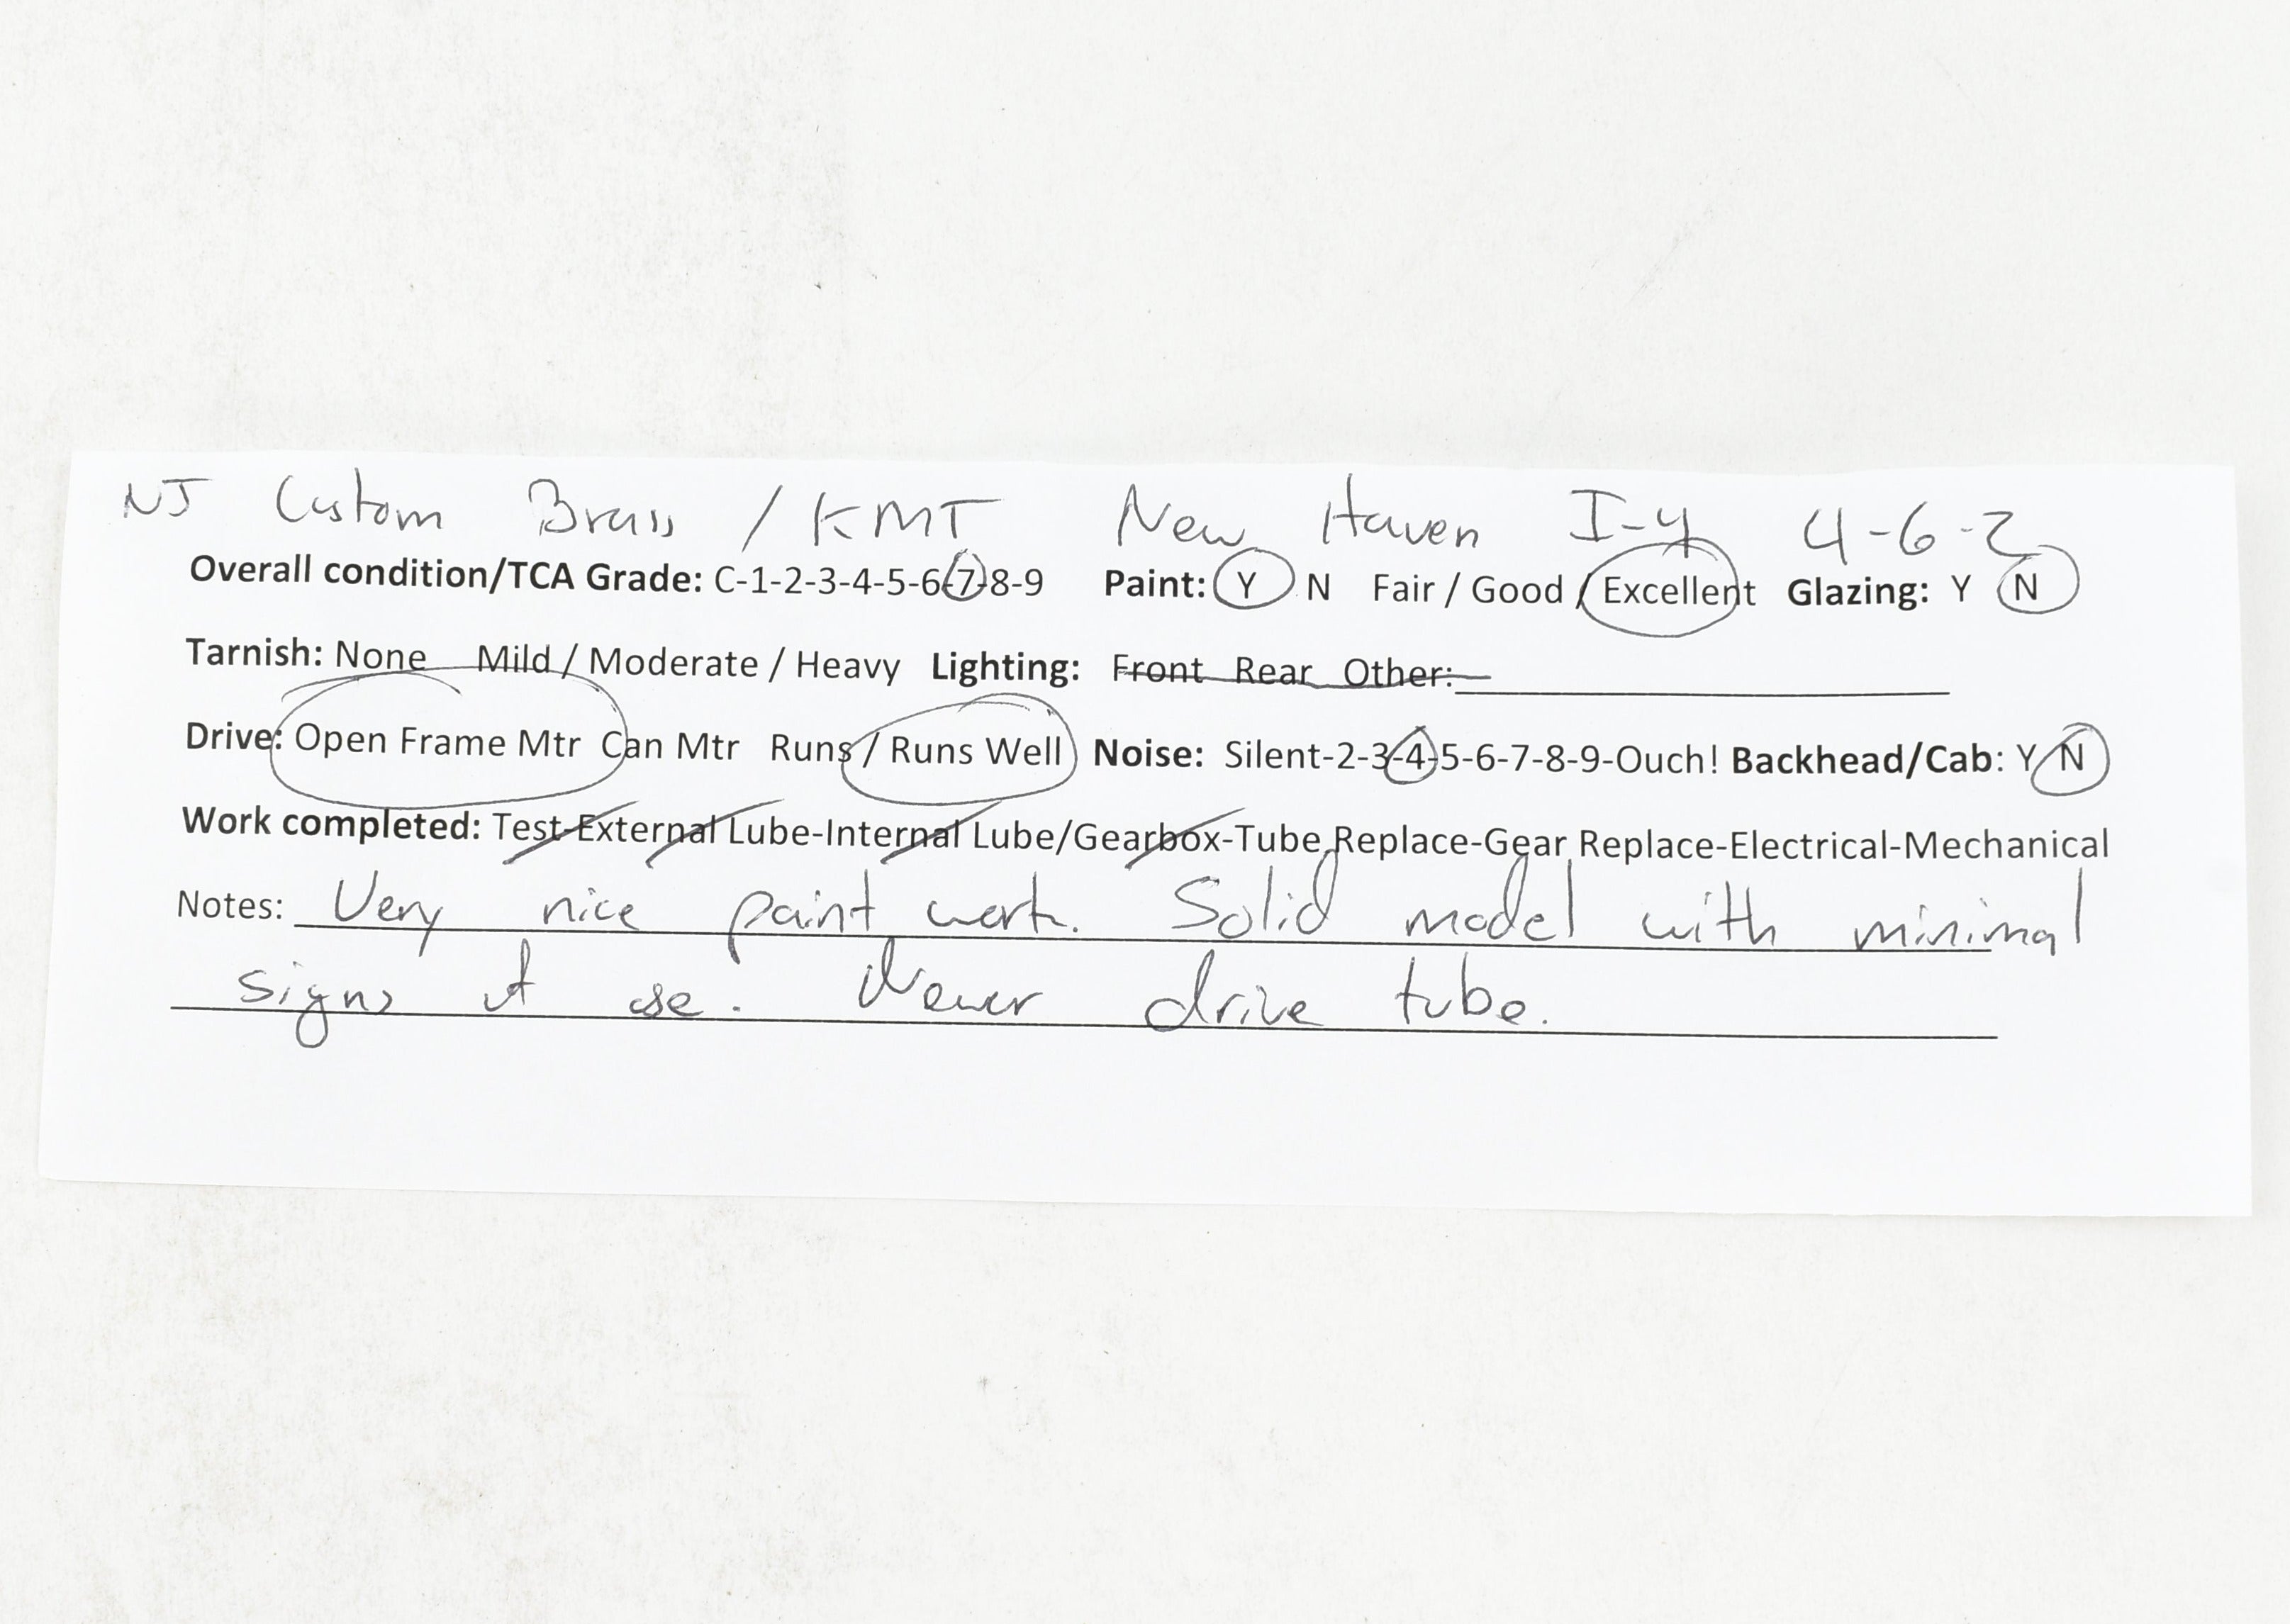 NJ Custom Brass / KMT New Haven I-4 4-6-2
Overall condition/TCA Grade: C-1-2-3-4-5-6-7-8-9 Paint: Y N Fair / Good / Excellent Glazing: Y N
Tarnish: None Mild / Moderate / Heavy Lighting: Front Rear Other:
Drive: Open Frame Mtr Can Mtr Runs / Runs Well Noise: Silent-2-3-4-5-6-7-8-9-Ouch! Backhead/Cab: Y N
Work completed: Test-External Lube-Internal Lube/Gearbox-Tube Replace-Gear Replace-Electrical-Mechanical
Notes: Very nice paint work. Solid model with minimal
signs of use. Newer drive tube.